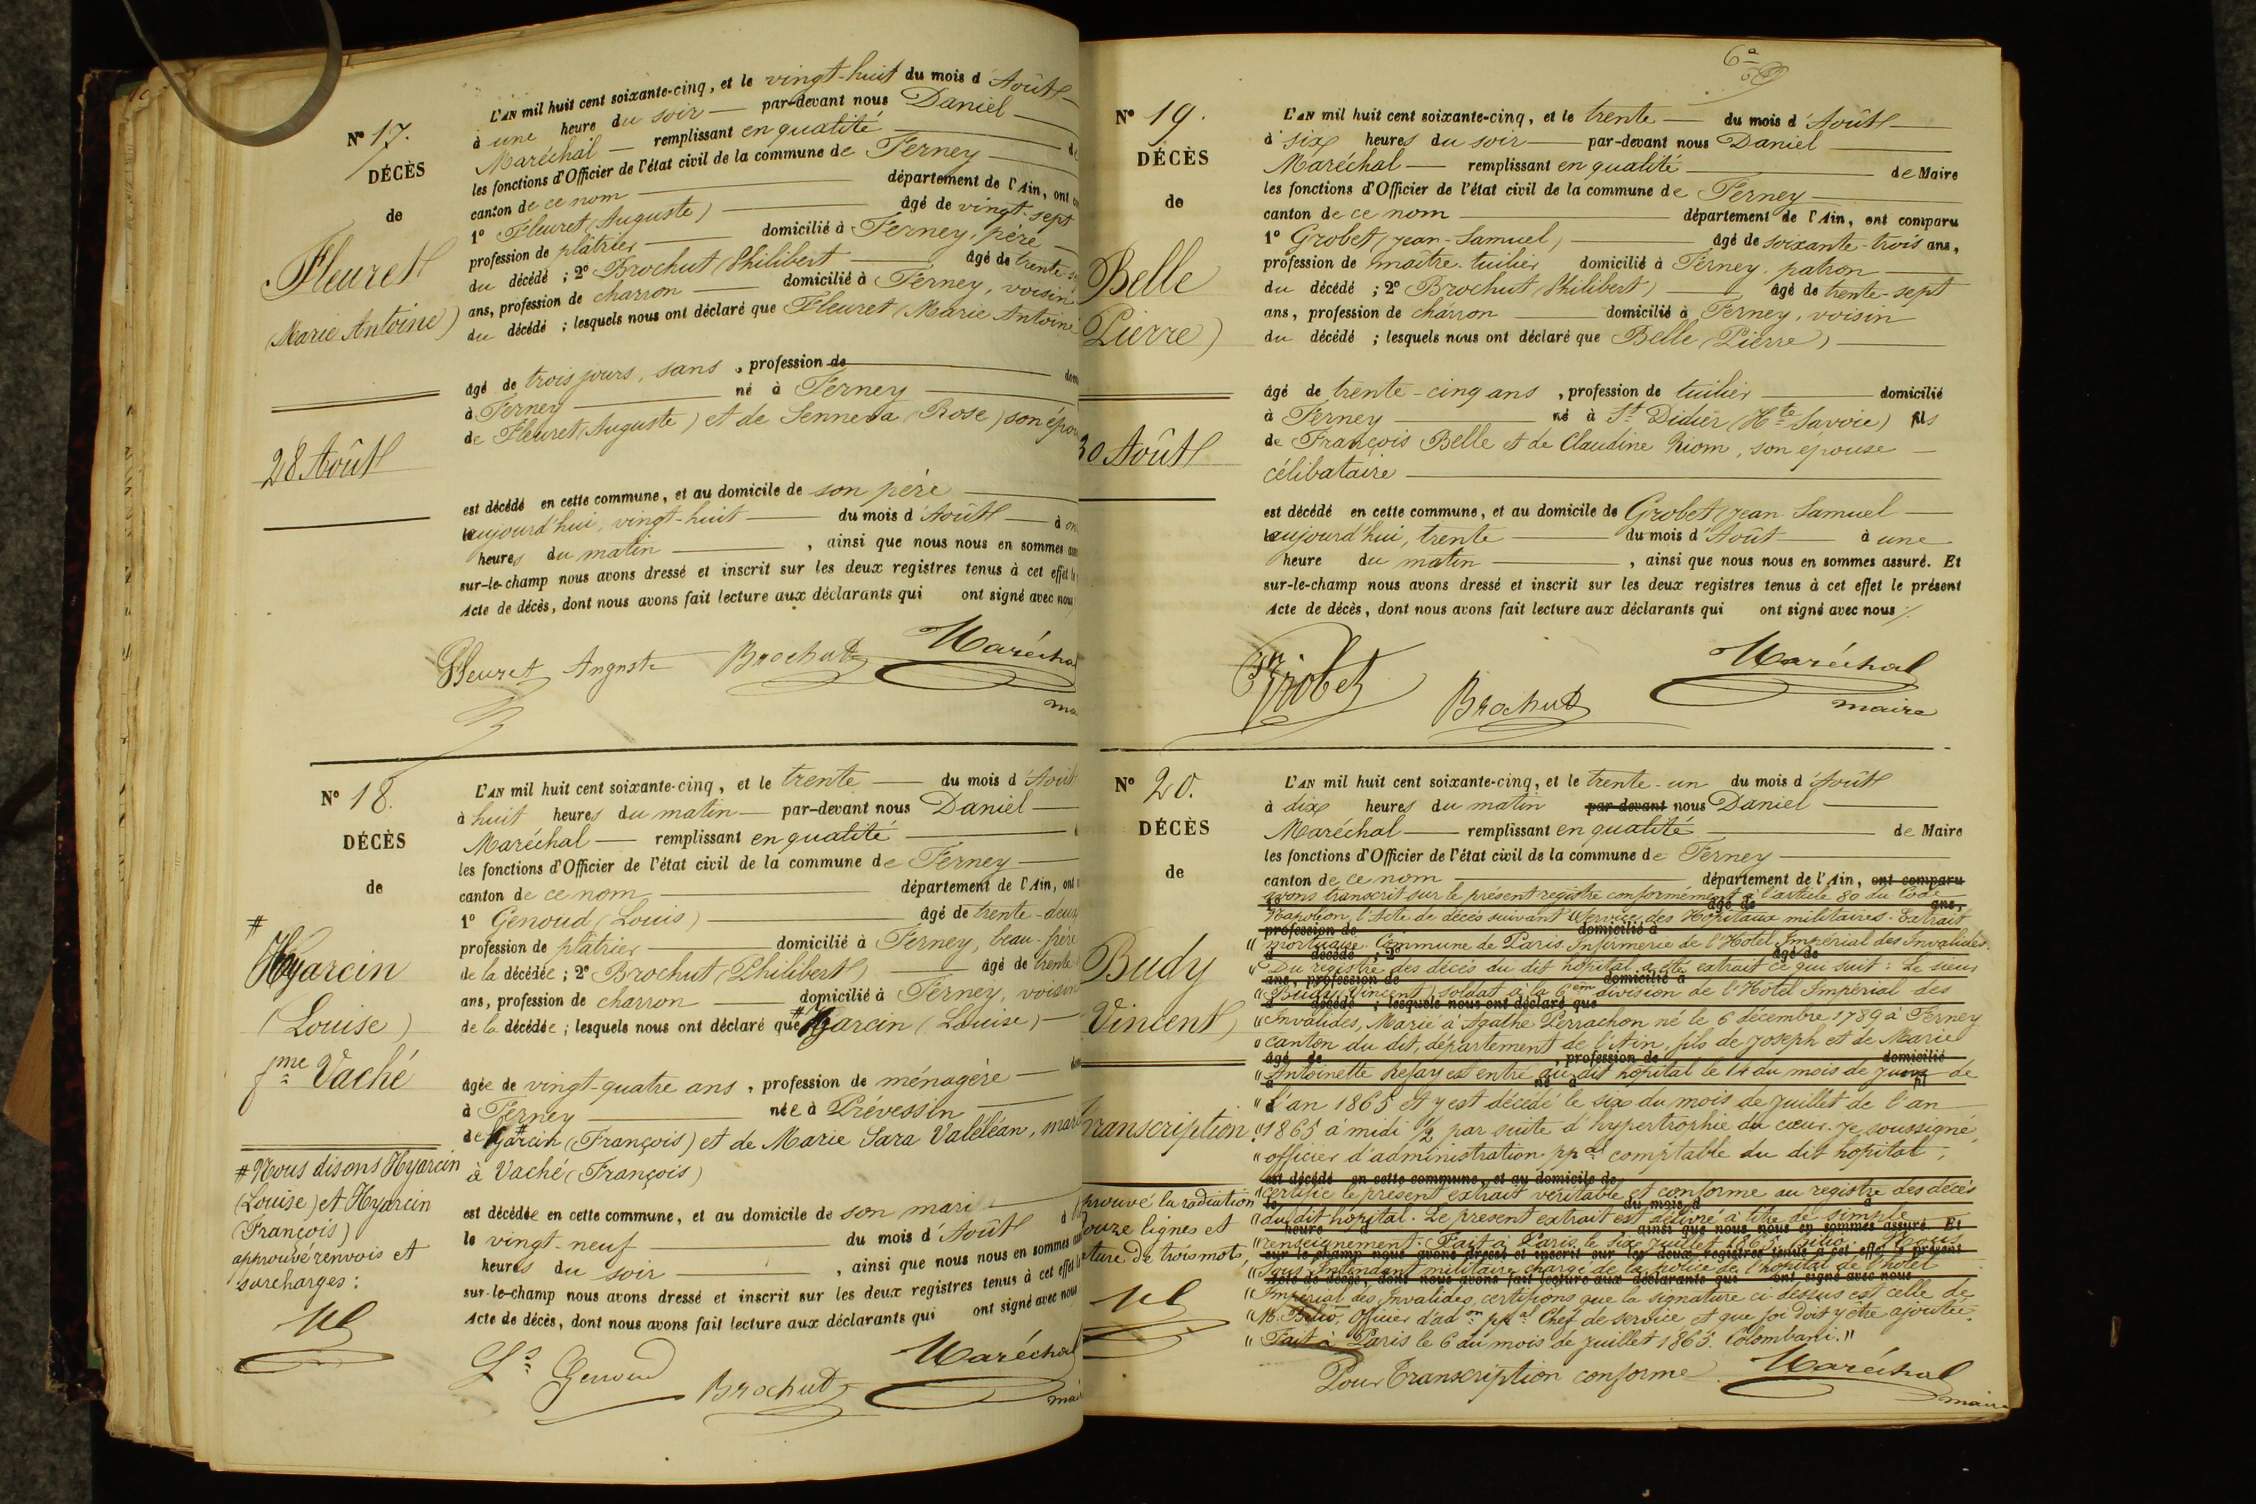 N° 17.
DÉCÈS
de
Fleuret
(Marie Antoine)
28 Août
L'AN mil huit cent soixante-cinq, et le vingt-huit du mois d'Août
à une heure du soir par-devant nous Daniel
Maréchal remplissant en qualité
les fonctions d'Officier de l'état civil de la commune de Ferney
canton de ce nom département de l'Ain, ont
1° Fleuret (Auguste) âgé de vingt-sept
profession de plâtrier domicilié à Ferney, père
du décédé ; 2° Brochut (Philibert âgé de trente
ans, profession de charron domicilié à Ferney, voisin
du décédé ; lesquels nous ont déclaré que Fleuret (Marie Antoine
âgé de trois jours, sans , profession de
à Ferney né à Ferney
de Fleuret (Auguste) et de Senneva (Rose) son
est décédé en cette commune, et au domicile de son père
aujourd'hui, vingt-huit du mois d'Août à
heures du matin , ainsi que nous nous en sommes
sur-le-champ nous avons dressé et inscrit sur les deux registres tenus à cet effet
Acte de décès, dont nous avons fait lecture aux déclarants qui ont signé avec nous
Fleuret Auguste Brochut Maréchal
N° 18.
DÉCÈS
de
#
Hyarcin
(Louise)
fme Vaché
# Nous disons Hyarcin
(Louise) et Hyarcin
(François)
approuvé renvois et
surcharges :
L'AN mil huit cent soixante-cinq, et le trente du mois d'Août
à huit heures du matin par-devant nous Daniel
Maréchal remplissant en qualité
les fonctions d'Officier de l'état civil de la commune de Ferney
canton de ce nom département de l'Ain, ont
1° Genoud (Louis) âgé de trente-deux
profession de plâtrier domicilié à Ferney, beau-frère
de la décédée ; 2° Brochut (Philibert) âgé de trente
ans, profession de charron domicilié à Ferney, voisin
de la décédée ; lesquels nous ont déclaré que # Hyarcin (Louise)
âgée de vingt-quatre ans , profession de ménagère
à Ferney née à Prévessin
de Hyarcin (François) et de Marie Sara Valéléan,
à Vaché (François)
est décédée en cette commune, et au domicile de son mari
le vingt-neuf du mois d'Août à
heures du soir , ainsi que nous nous en sommes
sur-le-champ nous avons dressé et inscrit sur les deux registres tenus à cet effet
Acte de décès, dont nous avons fait lecture aux déclarants qui ont signé avec nous
Ls Genoud Brochut Maréchal
N° 19.
DÉCÈS
de
Belle
Pierre)
30 Août
L'AN mil huit cent soixante-cinq, et le trente du mois d'Août
à six heures du soir par-devant nous Daniel
Maréchal remplissant en qualité de Maire
les fonctions d'Officier de l'état civil de la commune de Ferney
canton de ce nom département de l'Ain, ont comparu
1° Grobet (Jean-Samuel) âgé de soixante-trois ans,
profession de maître-tuilier domicilié à Ferney, patron
du décédé ; 2° Brochut (Philibert) âgé de trente-sept
ans, profession de charron domicilié à Ferney, voisin
du décédé ; lesquels nous ont déclaré que Belle (Pierre)
âgé de trente-cinq ans , profession de tuilier domicilié
à Ferney né à St Didier (Hte Savoie) fils
de François Belle et de Claudine Riom, son épouse
célibataire
est décédé en cette commune, et au domicile de Grobet (Jean Samuel
aujourd'hui, trente du mois d'Août à une
heure du matin , ainsi que nous nous en sommes assuré. Et
sur-le-champ nous avons dressé et inscrit sur les deux registres tenus à cet effet le présent
Acte de décès, dont nous avons fait lecture aux déclarants qui ont signé avec nous
Grobet Brochut Maréchal
maire
N° 20.
DÉCÈS
de
Budy
Vincent)
Transcription.
L'AN mil huit cent soixante-cinq, et le trente-un du mois d'Août
à dix heures du matin par-devant nous Daniel
Maréchal remplissant en qualité de Maire
les fonctions d'Officier de l'état civil de la commune de Ferney
canton de ce nom département de l'Ain, ont comparu
avons transcrit sur le présent registre conformément à l'article 80 du Code
Napoléon, l'Acte de décès suivant : Service des Hôpitaux militaires. Extrait
" mortuaire. Commune de Paris. Infirmerie de l'Hôtel Impérial des Invalides.
" Du registre des décès du dit hôpital a été extrait ce qui suit : Le sieur
" Budy (Vincent) soldat à la 6em division de l'Hôtel Impérial des
" Invalides, Marié à Agathe Perrachon né le 6 décembre 1789 à Ferney
" canton du dit, département de l'Ain, fils de Joseph et de Marie
" Antoinette Refay est entré au dit hôpital le 14 du mois de Juin de
" l'an 1865 et y est décédé le six du mois de Juillet de l'an
" 1865 à midi 1/2 par suite d'hypertrophie du cœur. Je soussigné,
" officier d'administration ppal comptable du dit hôpital,
" certifie le présent extrait véritable et conforme au registre des décès
" du dit hôpital. Le présent extrait est délivré à titre de simple
" renseignement. Fait à Paris le six Juillet 1865.
" Sous Intendant militaire chargé de la police de l'hôpital de l'hôtel
" Impérial des Invalides, certifions que la signature ci-dessus est celle de
" M. Officier d'adon ppal Chef de service et que foi doit y être ajoutée.
" Fait à Paris le 6 du mois de Juillet 1865. Colombani. "
Pour Transcription conforme. Maréchal
maire